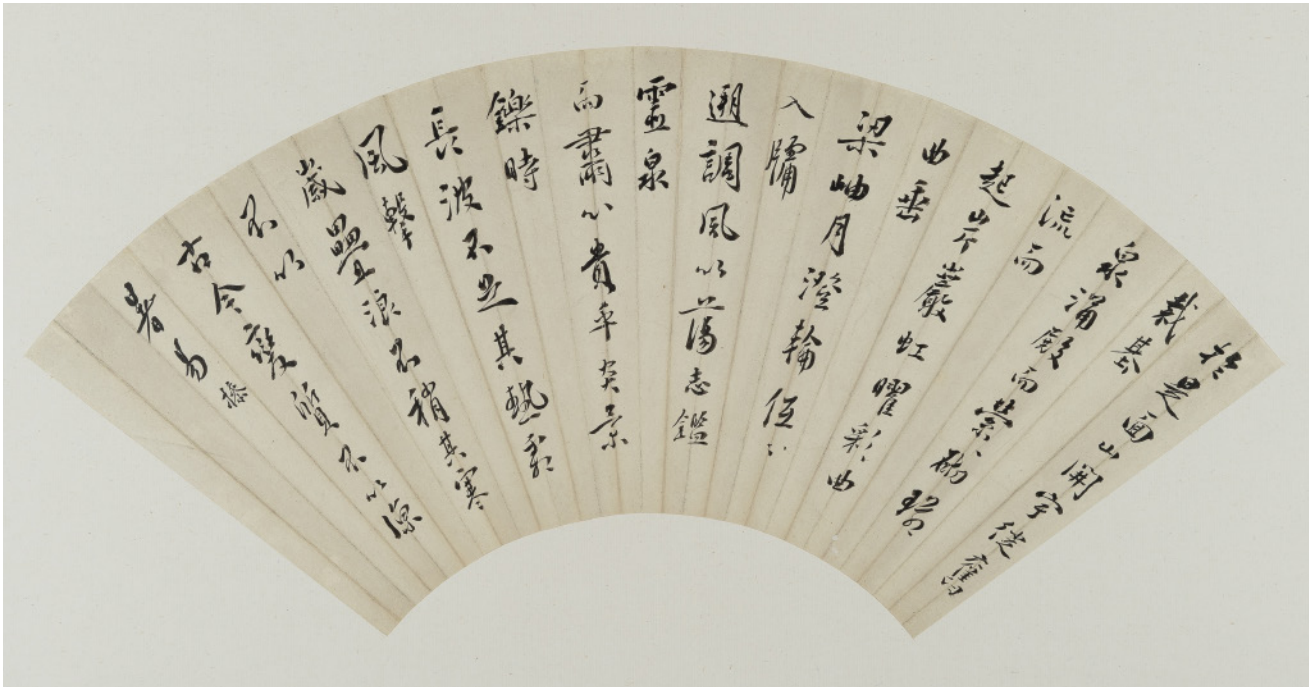 於是面山開宇從舊
裁基
泉涌殿而縈砌環
流而
起岸巖虹曜彩曲
曲垂
梁岫月澄輪低〻
入牖
遡調風以蕩志鑑
靈泉
而肅心貴乎炎景
鑠時
長波不足其熱霜
風擊
歲疊浪不稍其寒
不以
古今變質不以涼
暑易操